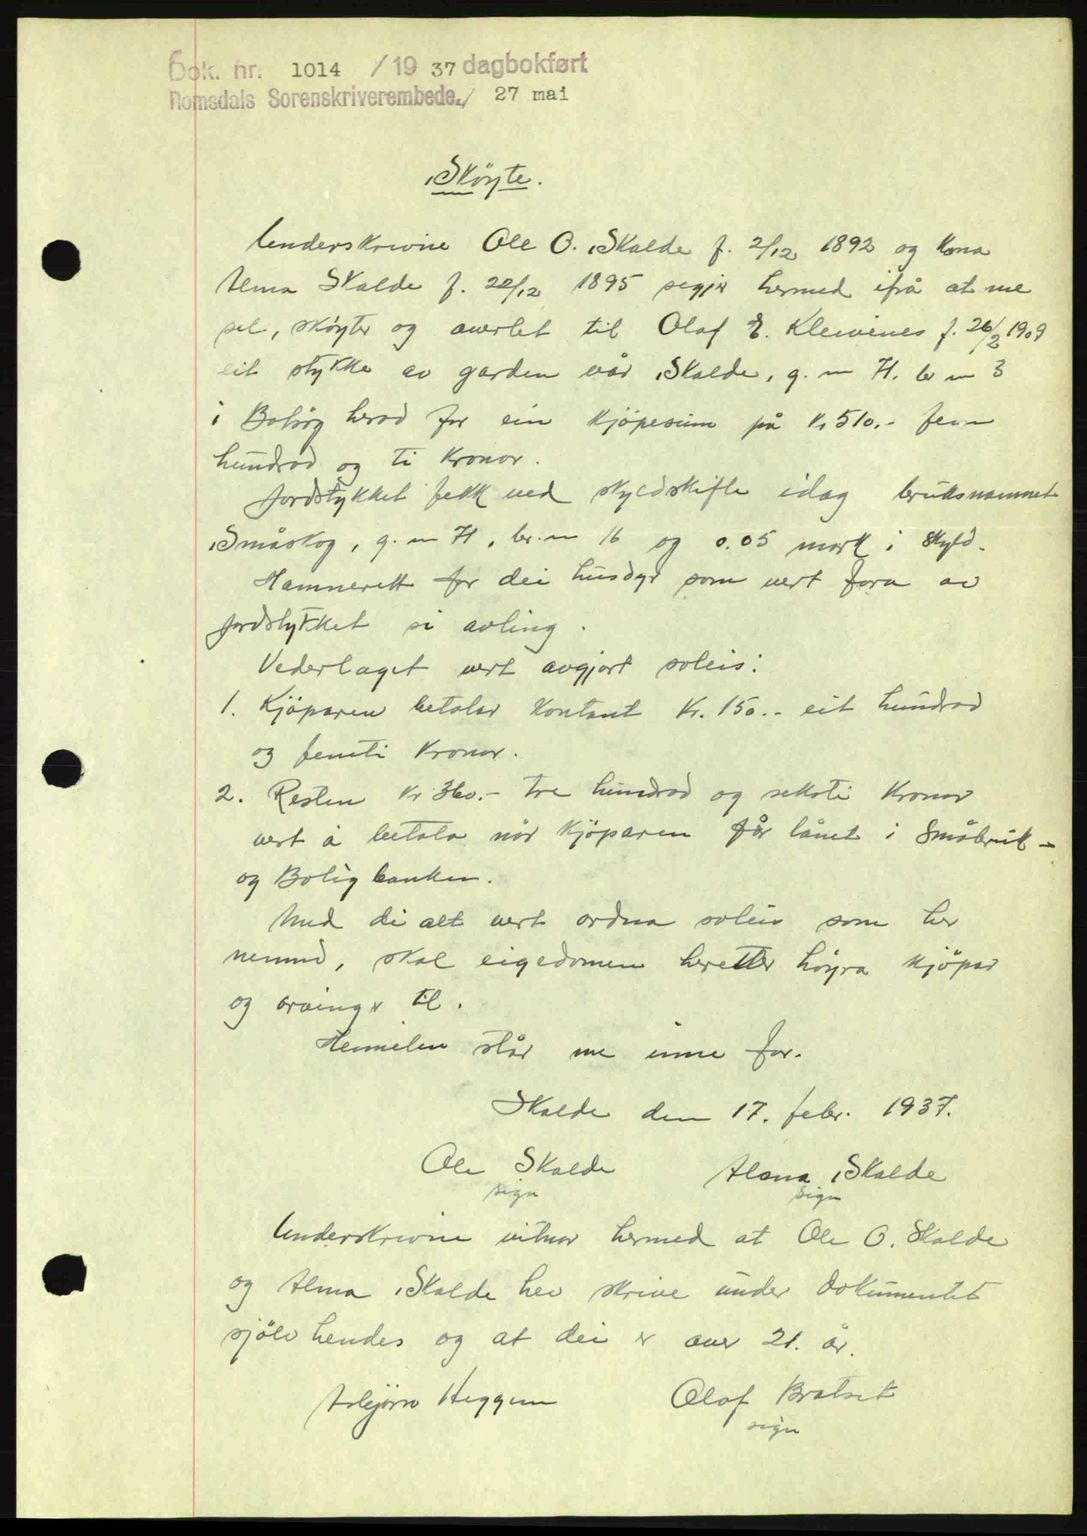 Dok. nr. 1014 /19 37 dagbokført
Romsdals Sorenskriverembede / 27 mai
Sköyte.
Underskrivne Ole O. Skalde f. 2/12 1892 og kona
Alma Skalde f. 22/12 1895 segjer hermed ifrå at me
sel, sköyter og averlet til Olaf E. Kleivenes f. 26/2 1909
eit stykke av garden vår Skalde, g. nr 71. br nr 3
i Bolsöy herad for ein kjöpesum på kr 510.- fem
hundrad og ti kronor.
Jordstykket fekk ved skyldskifte idag bruksnamnet
Småskog, g. nr 71, br. nr 16 og 0.05 mark i skyld.
Hamnerett for dei husdyr som vert fora av
jordstykket si avling.
Vederlaget vert avgjort soleis:
1. Kjöparen betalar kontant kr. 150.- eit hundrad
og femti kronor.
2. Resten kr 360.- tre hundrad og seksti kronor
vert å betala når kjöparen får lånet i Småbruk-
og Bolig banken.
Med di alt vert ordna soleis som her
nemnd, skal eigedomen heretter höyra kjöpar
og arvinger til.
Heimelen står me inne for.
Skalde den 17. febr. 1937.
Ole Skalde Alma Skalde
sign sign
Underskrivne vitnar hermed at Ole O. Skalde
og Alma Skalde hev skrive under dokumentet
sjölv hendes og at dei er aver 21. år.
Asbjörn Heggem Olaf Bratset
sign